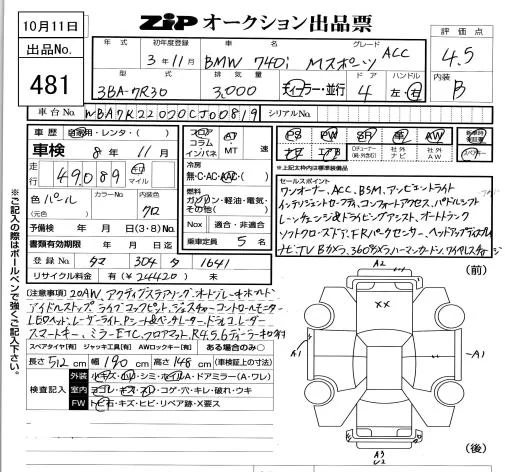 10月11日
ZiP オークション出品票
出品No.
481
年式 初年度登録 車名 グレード
3年11月 BMW 740i Mスポーツ ACC
型式 排気量 ドア ハンドル
3BA-7R30 3,000 ディーラー・並行 4 左・右
評価点
4.5
内装
B
車台No. WBA7K22000CJ00819 シリアルNo.
車歴 自家用・レンタ( )
車検 8年11月
走行 49089 キロ マイル
色 パール カラーNo. 内装色 クロ
(元色)
予備検 年 月 日(3・8)No.
書類有効期限 年 月 日迄
登録No. タマ 304 タ 1641
リサイクル料金 有(¥24420) 未
フロア コラム インパネ AT MT 速
冷房
無・C・AC・AAC・( )
燃料
ガソリン・軽油・電気・その他( )
Nox 適合・非適合
乗車定員 5 名
PS PW SR 革 AW
ナビ エアB Dチューナー(純・社外含む) 社外ナビ 社外AW
*上記太枠内は標準装備品
セールスポイント
ワンオーナー、ACC、BSM、アンビエントライト
インテリジェントセーフティ、コンフォートアクセス、パドルシフト
レーンチェンジ&ドライビングアシスト、オートトランク
ソフトクローズドア、FRパークセンサー、ヘッドアップディスプレイ
ナビ、TV、Bカメラ、360°カメラ、ハーマンカードン、ワイヤレスチャージ
[注意事項] 20AW、アクティブステアリング、オートブレーキホールド
アイドルストップ、ライブコックピット、ジェスチャーコントロール、モニター
LEDヘッド、レーザーライト、Pシート&ベンチレーター、ドラレコ、レーダー
スマートキー、ミラーETC、フロアマット、R4.5.6ディーラー記録有
スペアタイヤ(有) ジャッキ工具(有) AWロックキー(有) ある場合のみ○
長さ 512 cm 幅 190 cm 高さ 148 cm (車検証上の寸法)
検査記入
外装 キズ・凹・シミ・オイルA・ドアミラー(A・ワレ)
室内 ヨゴレ・キズ・スレ・コゲ・穴・キレ・破れ・ウキ
FW トビ石・キズ・ヒビ・リペア跡・X要ス
※ご記入の際はボールペンで強くご記入下さい。
(前)
A2
XX
A1
A1
A3
U2
(後)